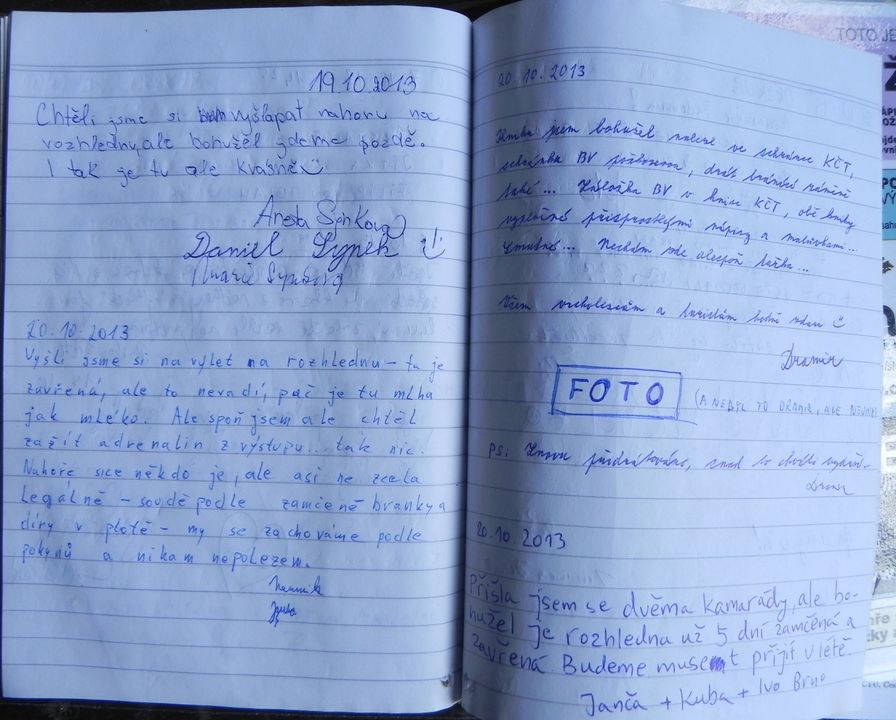 19.10.2013
Chtěli jsme si vyšlapat nahoru na
rozhlednu, ale bohužel jdeme pozdě.
I tak je tu ale krásně
Aneta
Daniel
Marie
20.10.2013
Vyšli jsme si na výlet na rozhlednu – ta je
zavřená, ale to nevadí, pač je tu mlha
jak mléko. Ale spoň jsem ale chtěl
zažít adrenalin z výstupu... tak nic.
Nahoře sice někdo je, ale asi ne zcela
legálně – soudě podle zamčené branky a
díry v plotě – my se zachováme podle
pokynů a nikam nepolezem.
Kuba
20.10.2013
jsem bohužel nalezl ve schránce KČT,
schránka BV poškozena, drát bránící
také... Záložka BV v knize KČT, obě knihy
vyplněné nápisy a malůvkami...
Smutné... Nechám zde alespoň tužku...
Všem a zdar
Dramir
FOTO
(A NEBYL TO DRAMIR, ALE
PS: Znovu snad to chvíli vydrží.
20.10.2013
Přišla jsem se dvěma kamarády, ale bo-
hužel je rozhledna už 5 dní zamčená a
zavřená. Budeme muset přijít v létě.
Janča + Kuba + Ivo Brno
TOTO JE